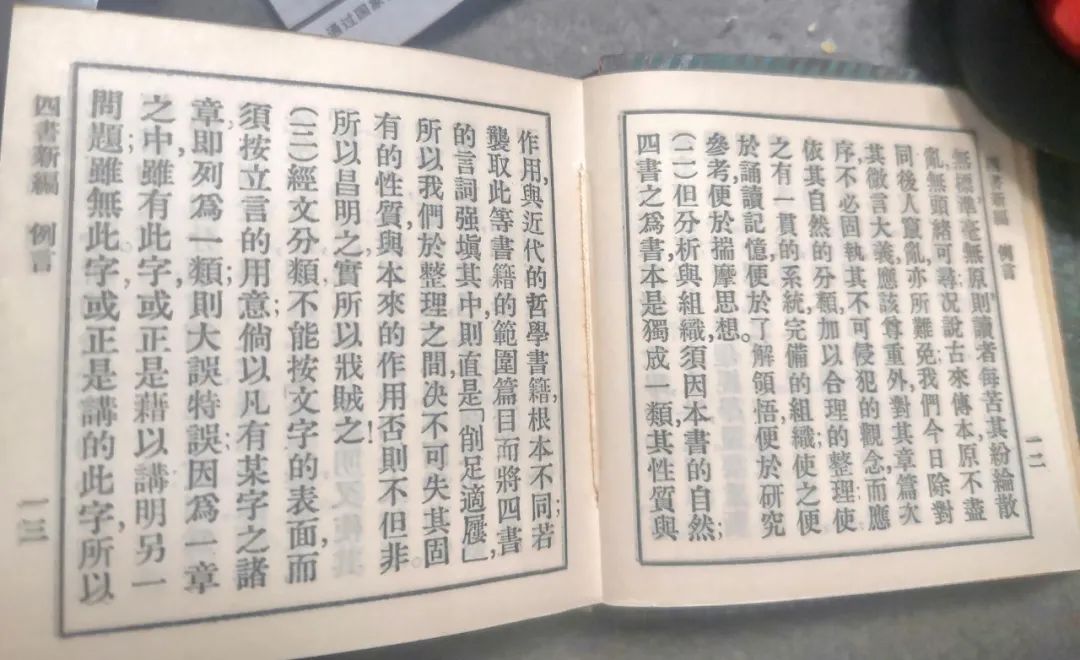 通过国家
四書新編 例言
一二
無標準毫無原則讀者每苦其紛綸散
亂,無頭緒可尋;况說古來傳本,原不盡
同後人竄亂,亦所難免;我們今日除對
其微言大義應該尊重外,對其章篇次
序,不必固執其不可侵犯的觀念,而應
依其自然的分類,加以合理的整理;使
之有一貫的系統,完備的組織;使之便
於誦讀記憶,便於了解領悟,便於研究
參考,便於揣摩思想。
(二)但分析與組織,須因本書的自然;
四書之爲書,本是獨成一類,其性質與
作用,與近代的哲學書籍,根本不同;若
襲取此等書籍的範圍篇目,而將四書
的言詞,强塡其中,則直是「削足適屨」
所以我們於整理之間,决不可失其固
有的性質,與本來的作用。否則不但非
所以昌明之,實所以戕賊之!
(三)經文分類,不能按文字的表面,而
須按立言的用意;倘以凡有某字之諸
章,即列爲一類,則大誤特誤;因爲一章
之中,雖有此字,或正是藉以講明另一
問題;雖無此字,或正是講的此字,所以
四書新編 例言
一三